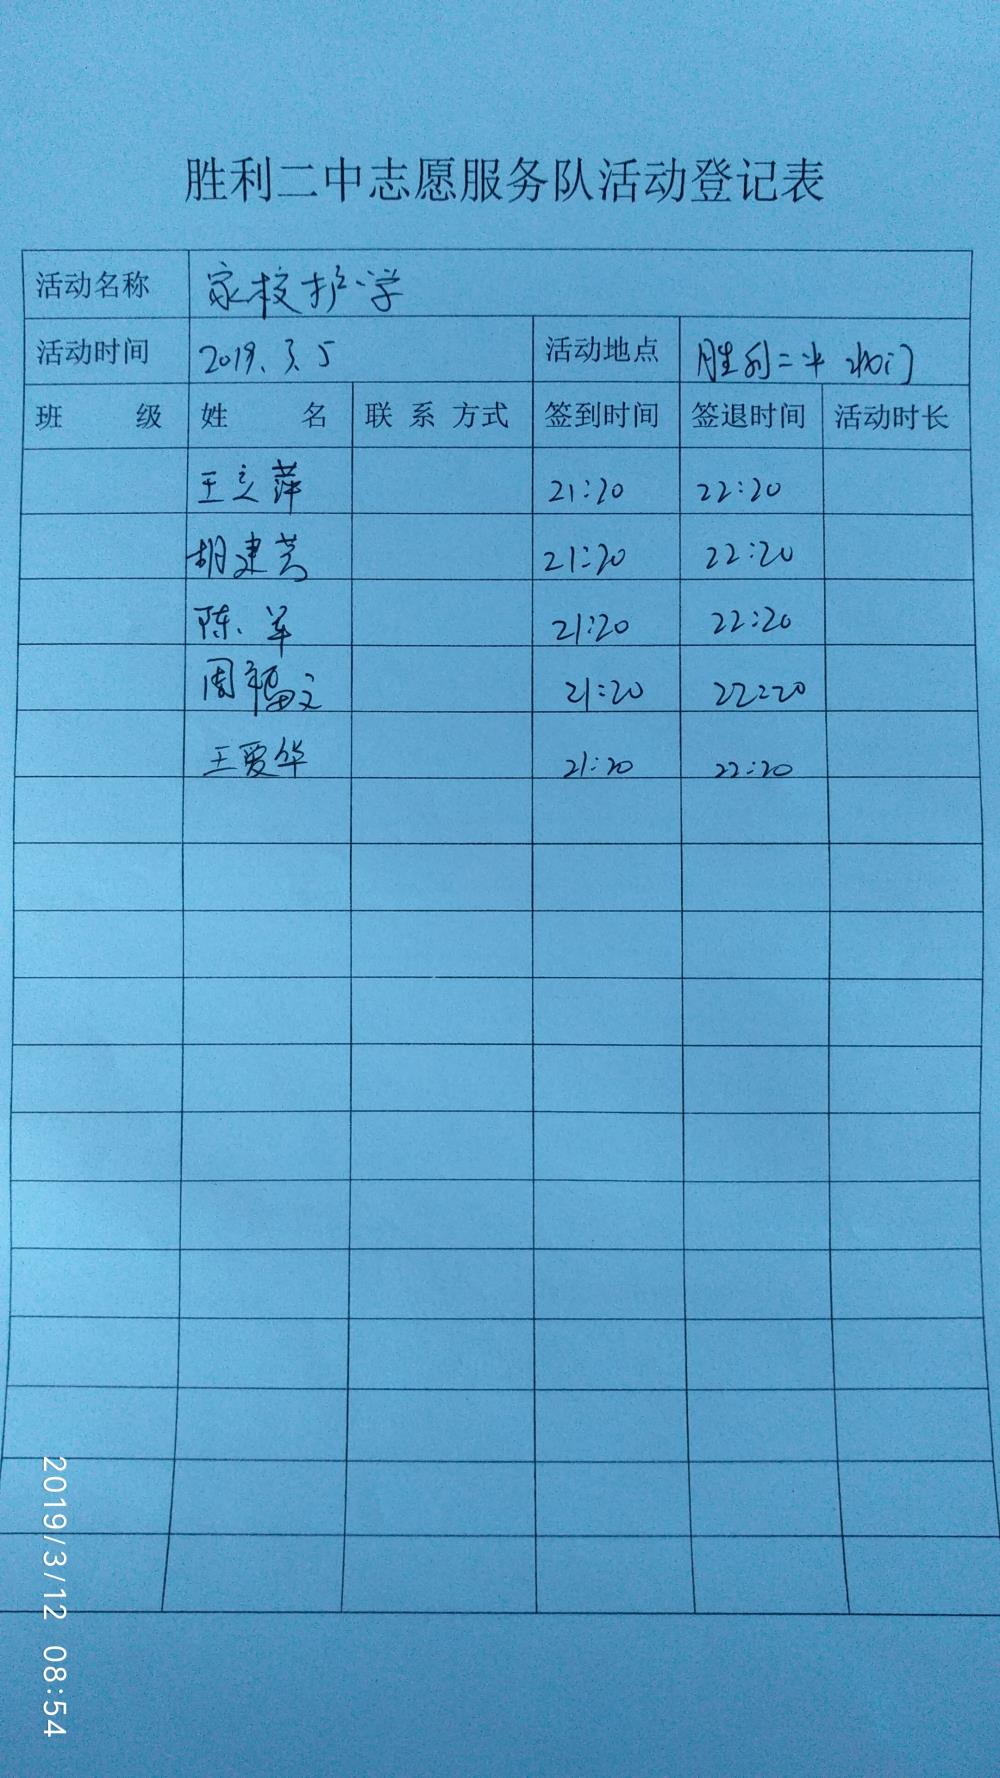 胜利二中志愿服务队活动登记表
活动名称 家校护学
活动时间 2019.3.5 活动地点 胜利二中 北门
班 级 姓 名 联 系 方式 签到时间 签退时间 活动时长
王立萍 21:20 22:20
胡建芳 21:20 22:20
陈军 21:20 22:20
周福文 21:20 22:20
王爱华 21:20 22:20
2019/3/12 08:54